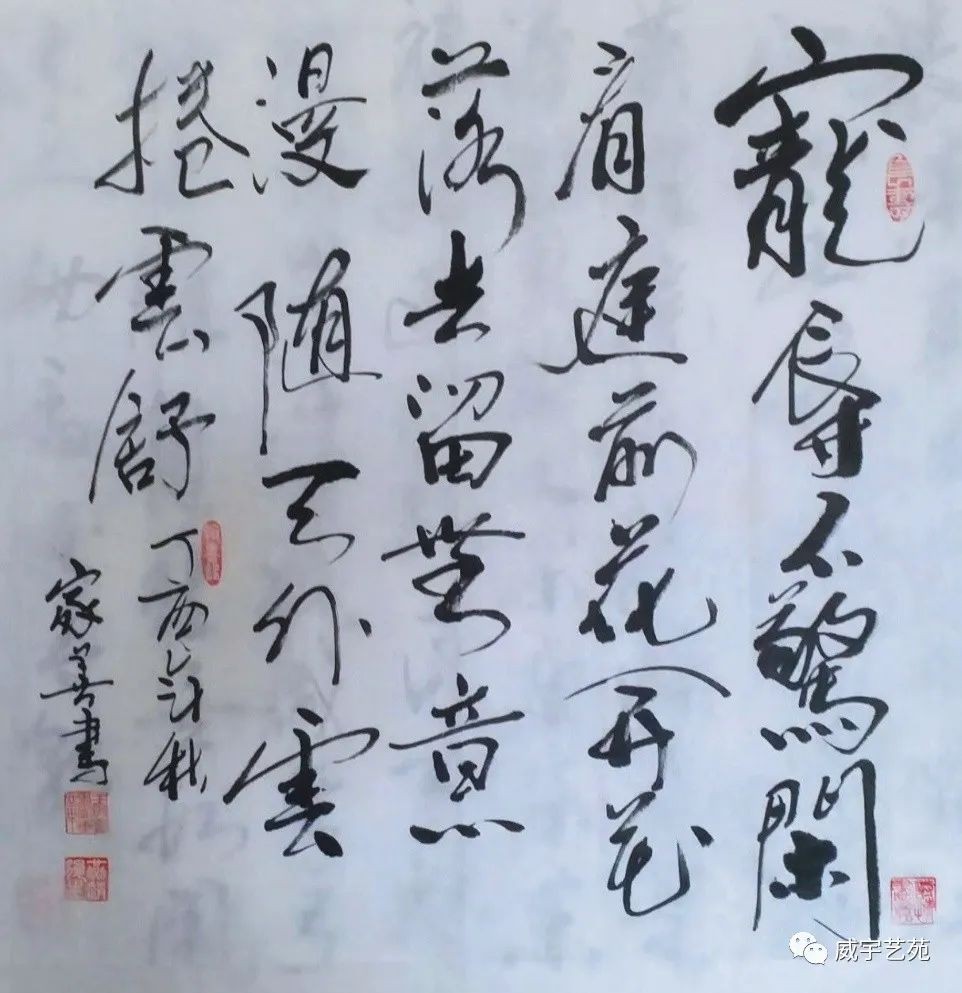 寵辱不驚閑
看庭前花開花
落去留無意
漫随天外雲
捲雲舒
丁酉秋
家善書
威宇艺苑